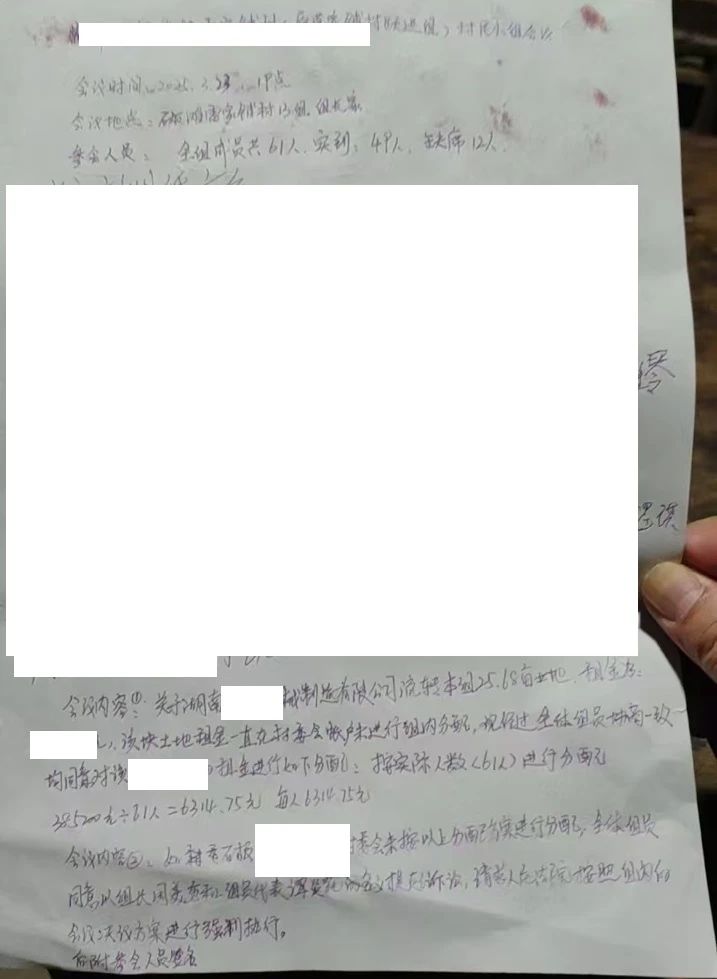 村民小组会议
会议时间：2025.3.23 19点
会议地点：家铺村13组 组长家
参会人员： 全组成员共61人，实到：49人，缺席12人，
会议内容①：关于湖南 械制造有限公司流转本组25.68亩土地，租金为：
该块土地租金一直在村委会账户未进行组内分配，现经过全体组员协商一致
均同意对该 租金进行如下分配：按实际人数（61人）进行分配
385200元÷61人=6314.75元 每人6314.75元
会议内容②：如 村委会未按以上分配方案进行分配，全体组员
同意以组长 组员代表 的名义提起诉讼，请求人民法院按照组内的
会议决议方案进行强制执行。
后附参会人员签名